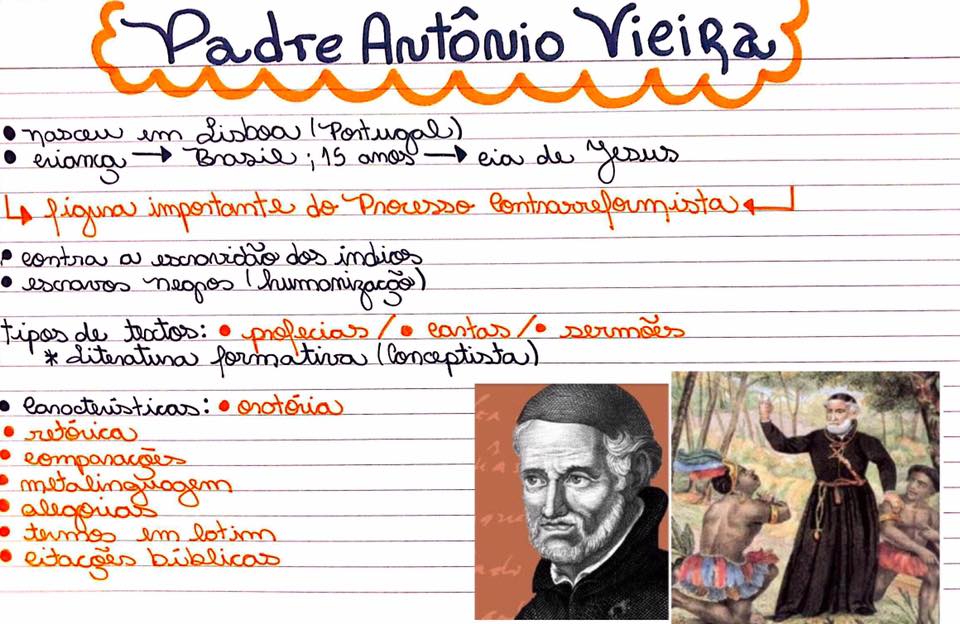 Padre Antônio Vieira
• nasceu em Lisboa (Portugal)
• criança → Brasil ; 15 anos → cia de Jesus
↳ figura importante do Processo Contrarreformista ↵
• contra a escravidão dos índios
• escravos negros (humanização)
tipos de textos: • profecias / • cartas / • sermões
* Literatura formativa (Conceptista)
• Características: • oratória
• retórica
• comparações
• metalinguagem
• alegorias
• termos em latim
• citações bíblicas